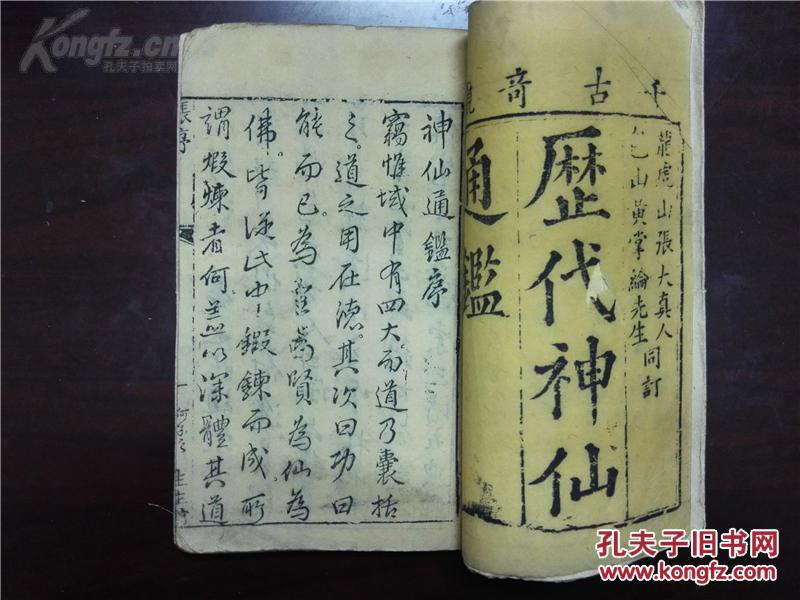 Kongfz.cn
孔夫子拍卖网
千古奇
龍虎山張大真人
山黃掌綸先生
同訂
歷代神仙
通鑑
神仙通鑑序
竊惟域中有四大而道乃囊括
之道之用在德其次曰功曰
能而已為聖為賢為仙為
佛皆從此中鍛鍊而成所
謂煅煉者何蓋以深體其道
張序
一
生生
孔夫子旧书网
www.kongfz.com